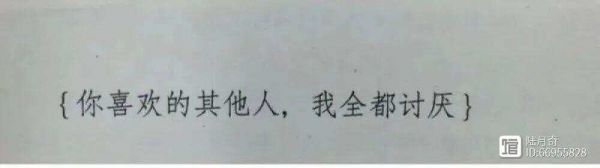 {你喜欢的其他人，我全都讨厌}
馆 陆月奇
ID:66955828